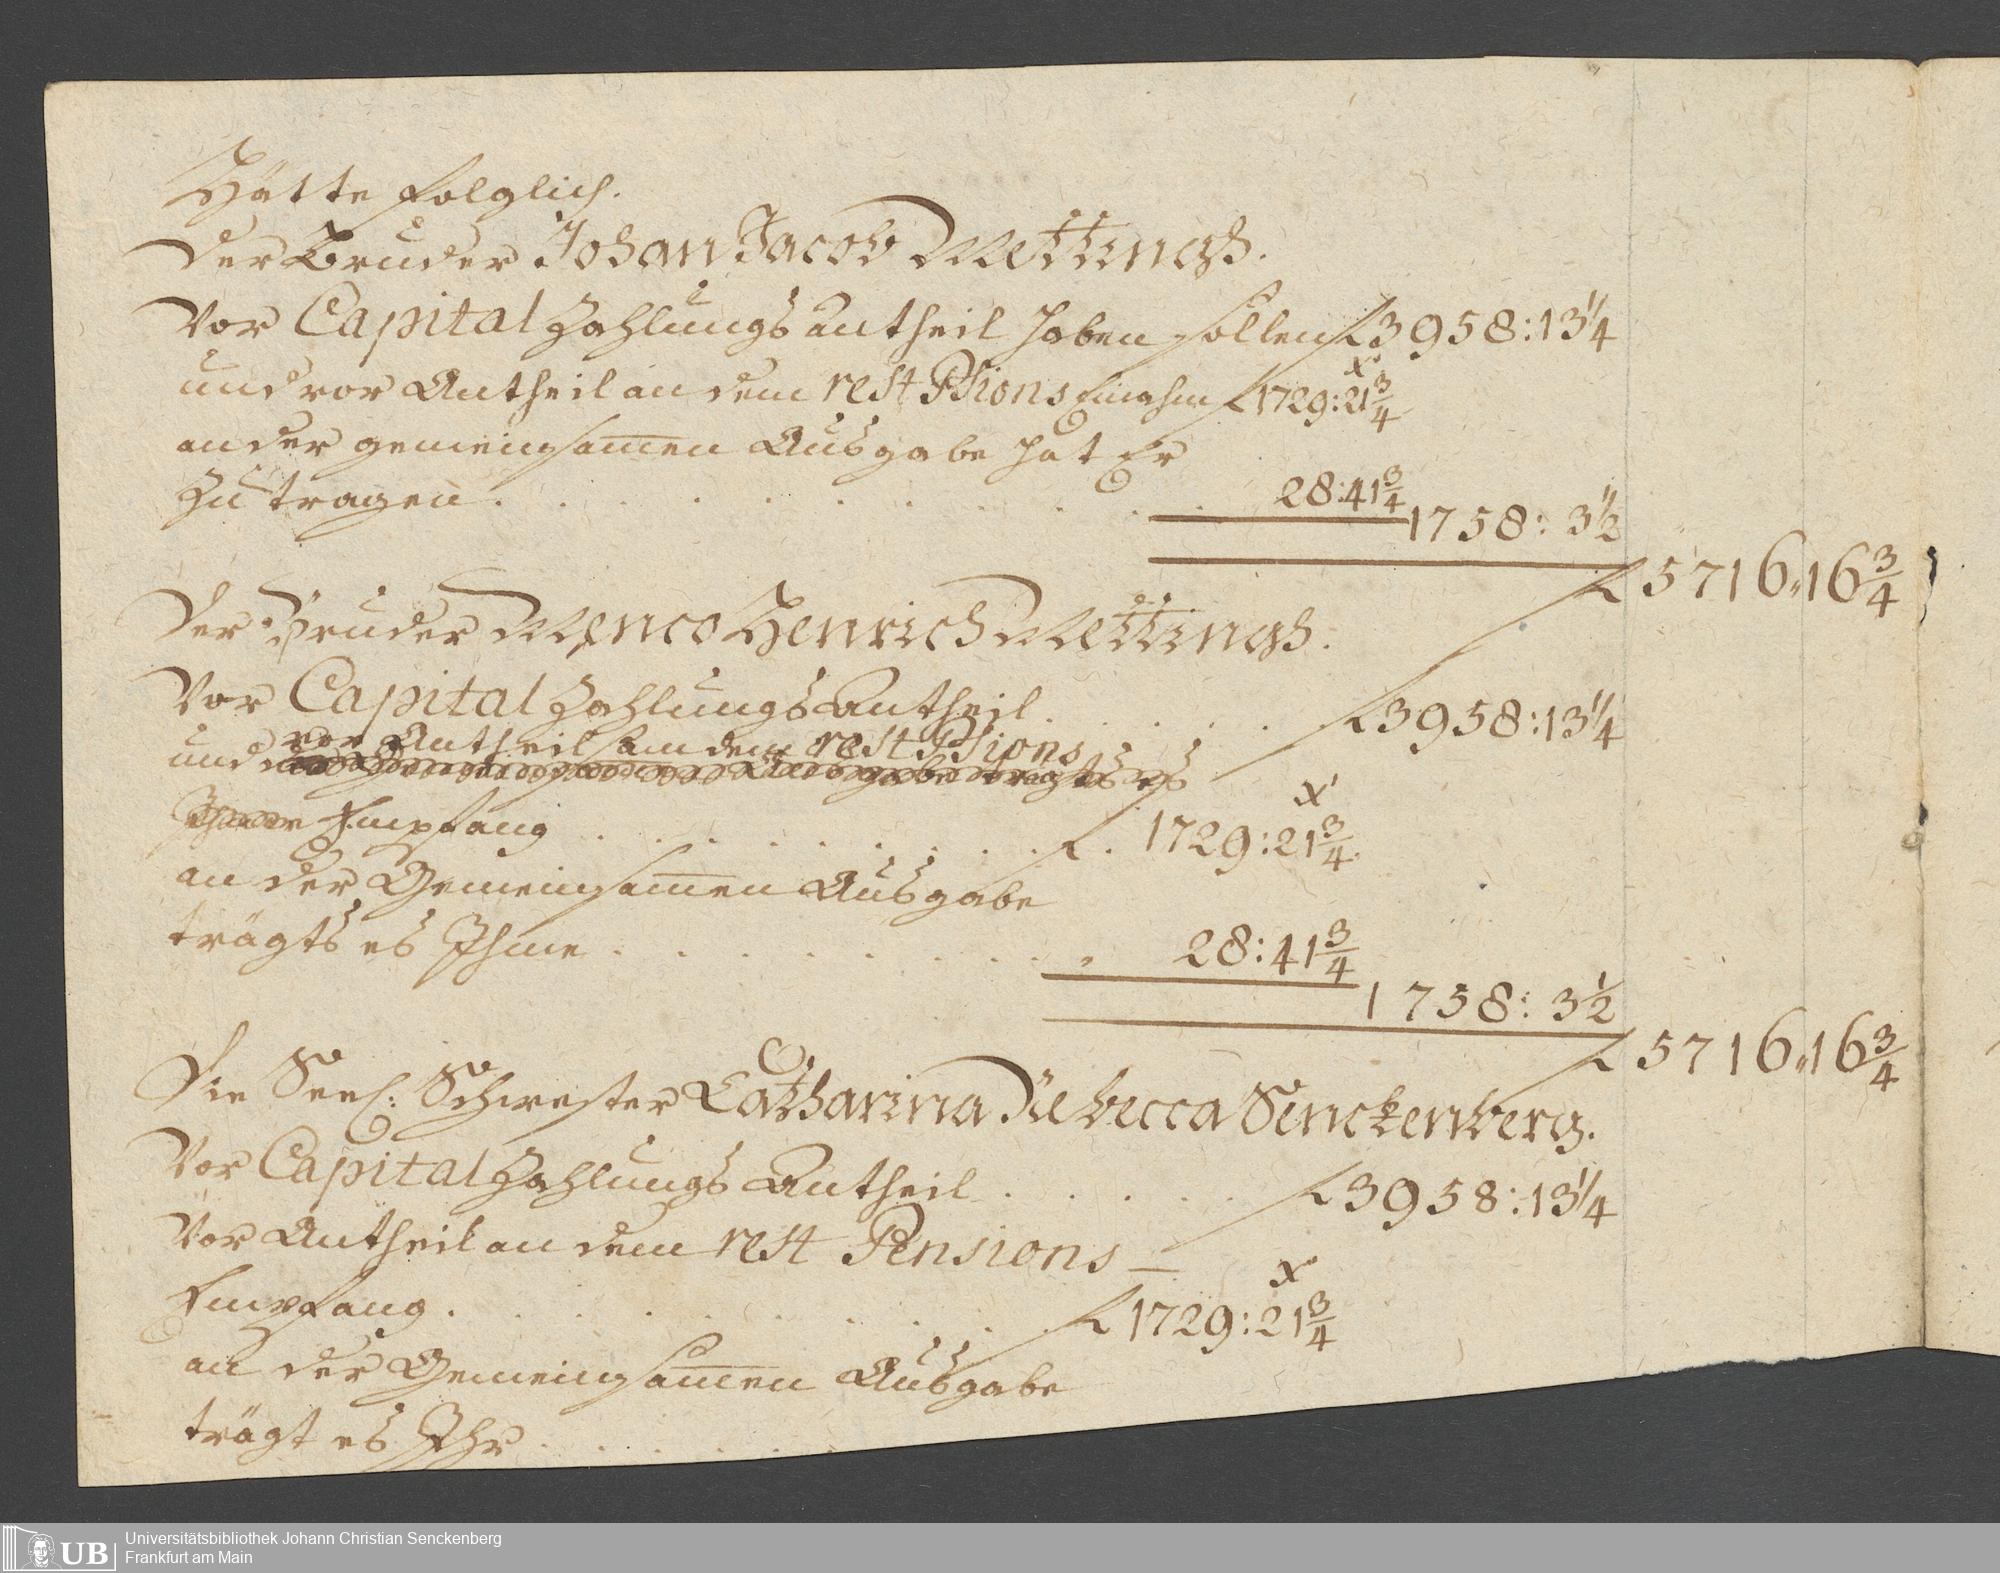 Hätte folglich.
Der Bruder Johan Jacob Mettingh.
Vor Capital Zahlungs Antheil haben sollen f 3958:13 1/4
und vor Antheil an dem rest Psions Einahm f 1729:21 3/4 x
an der gemeinsamen Ausgabe hat Er
zu tragen . . . . . . . . . . . 28:41 3/4
1758: 3 1/2
f 5716,,16 3/4
Der Bruder Menco Henrich Mettingh.
Vor Capital Zahlungs Antheil . . . . . f 3958:13 1/4
vor Antheil an dem rest Psions
und Ausgabe trägts es
Ihme Empfang . . . . . . . . f. 1729:21 3/4 x
an der Gemeinsamen Ausgabe
trägts es Ihme . . . . . . . . 28:41 3/4
1758: 3 1/2
f 5716,,16 3/4
Die Seel. Schwester Catharina Rebecca Senckenberg.
Vor Capital Zahlungs Antheil . . . . . f 3958:13 1/4
Vor Antheil an dem rest Pensions –
Empfang . . . . . . . . f 1729:21 3/4 x
an der Gemeinsamen Ausgabe
trägt es Ihr . . . . . .
UB
Universitätsbibliothek Johann Christian Senckenberg
Frankfurt am Main